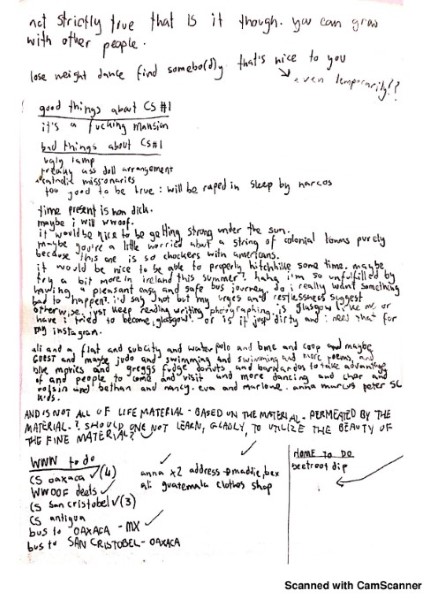 not strictly true that is it though. you can grow
with other people.
lose weight dance find somebo(d)y that's nice to you
even temporarily!?
good things about CS #1
it's a fucking mansion
bad things about CS#1
ugly lamp
freaky ass doll arrangement
missionaries
too good to be true : will be raped in sleep by narcos
time present is non dick.
maybe i will wwoof.
it would be nice to be getting strong under the sun.
maybe you're a little worried about a string of colonial towns purely
because this one is so chockers with americans.
it would be nice to be able to properly hitchhike some time. maybe
try a bit more in ireland this summer? haha i'm so unfulfilled by
having a pleasant easy and safe bus journey. do i really want something
bad to happen? i'd say not but my urges and restlessness suggest
otherwise. just keep reading writing photographing. is glasgow like me or
have i tried to become glasgow? or is it just dirty and i need that for
my instagram.
ali and a flat and subcity and water polo and bone and coop and maybe
guest and maybe judo and swimming and swimming and more poems and
blue movies and greggs fudge donuts and to take advantage
of and people to come and visit and more dancing and char and
roisin and bethan and nancy. eva and marlene. anna marcus peter SL
kids.
AND IS NOT ALL OF LIFE MATERIAL - BASED ON THE MATERIAL - PERMEATED BY THE
MATERIAL.? SHOULD ONE NOT LEARN, GLADLY, TO UTILIZE THE BEAUTY OF
THE FINE MATERIAL?
WWW to do
CS oaxaca ✓(4)
WWOOF deets ✓
CS san cristobel ✓(3)
CS antigua
bus to OAXACA - MX ✓
bus to SAN CRISTOBEL - OAXACA
anna x2 address
ali guatemala clothes shop
HOME TO DO
beetroot dip
Scanned with CamScanner